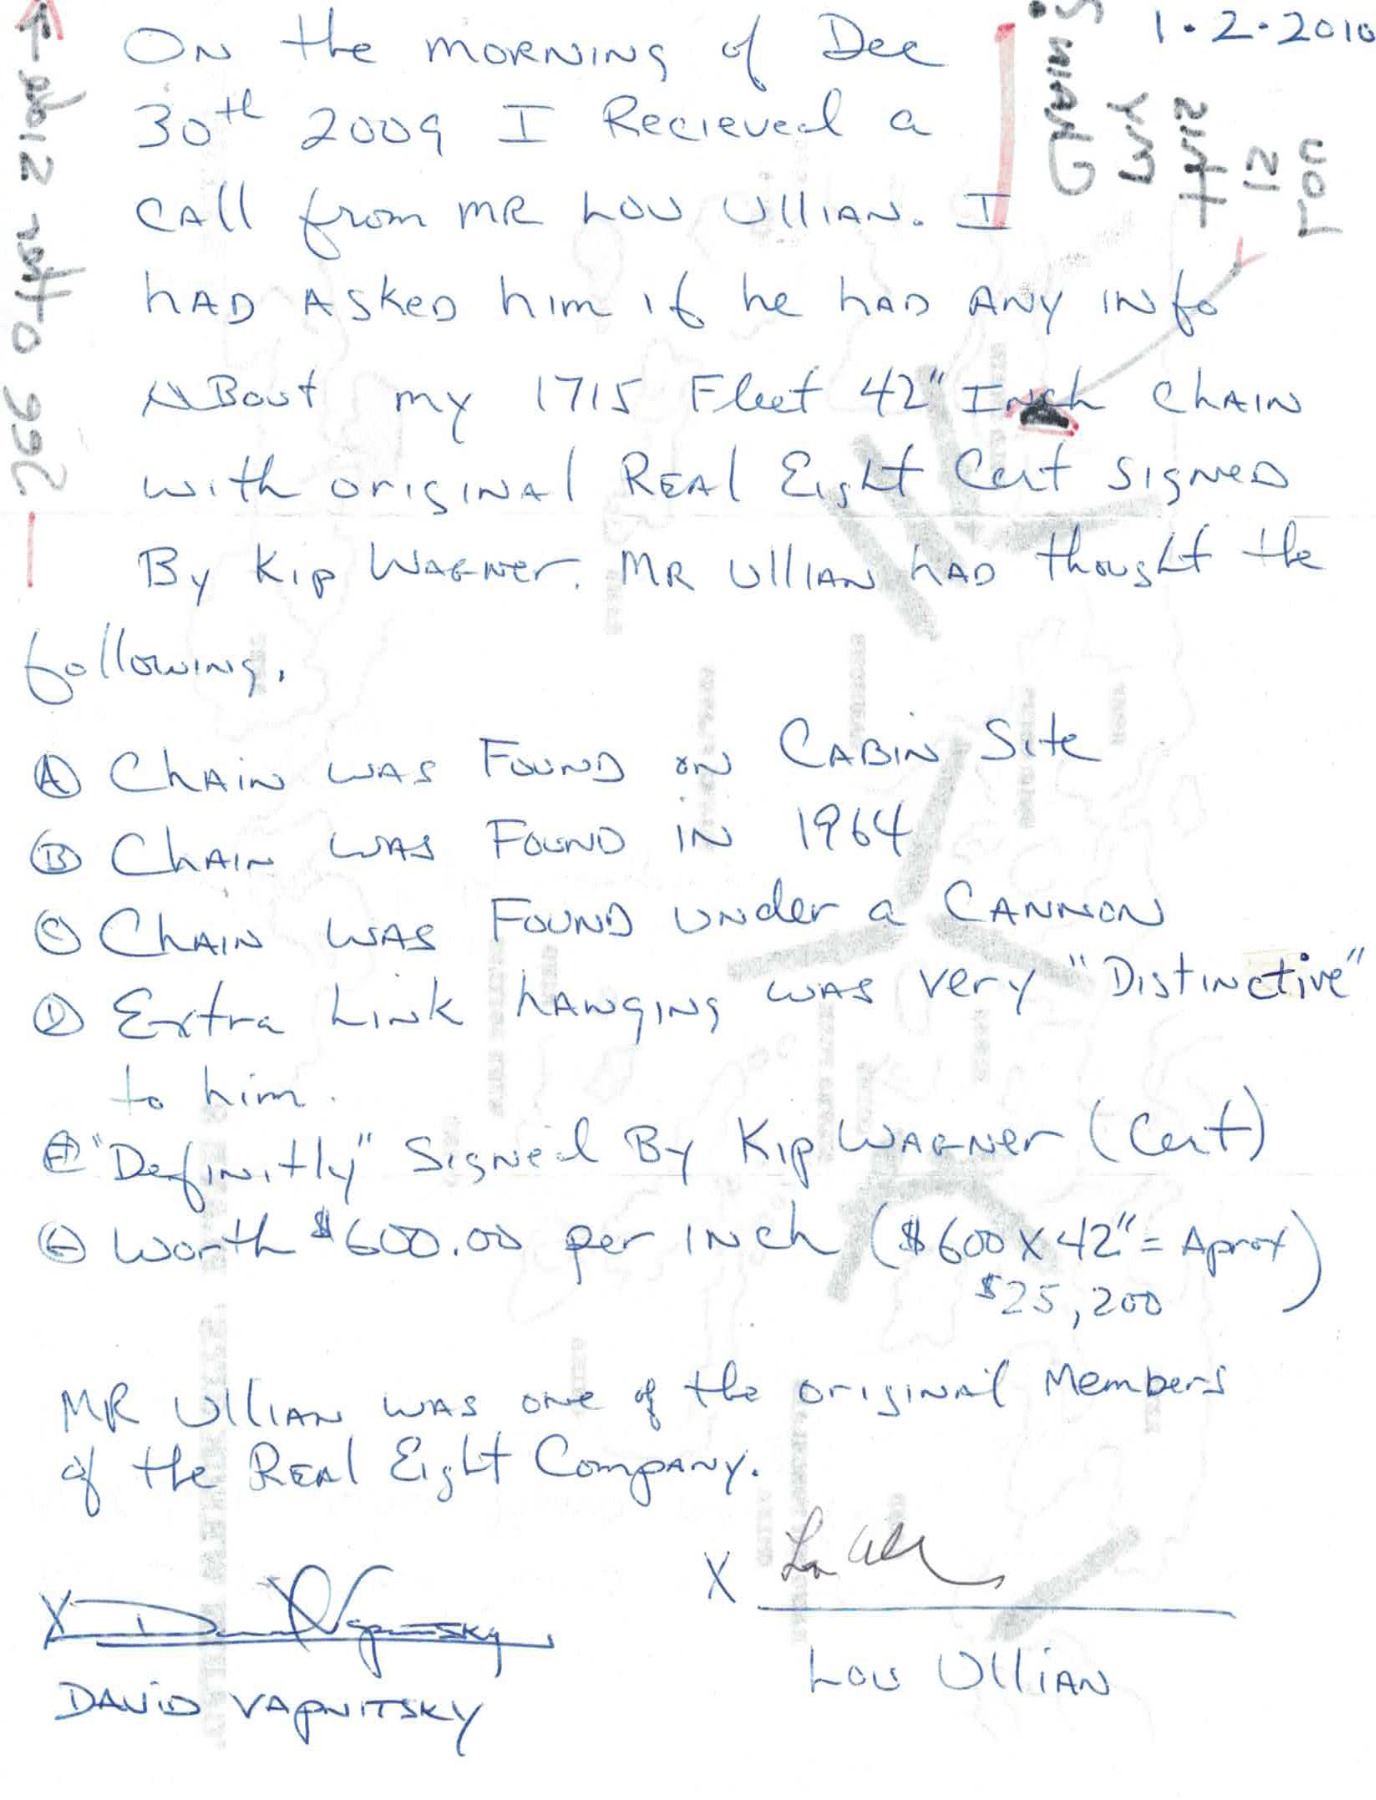 1·2·2010
Lou
is
this
my
Chain?
See other side
On the morning of Dec
30th 2009 I Recieved a
Call from MR Lou Ullian. I
had Asked him if he had any info
About my 1715 Fleet 42" Inch Chain
with original Real Eight Cert signed
By Kip Wagner. MR Ullian had thought the
following.
Ⓐ Chain was Found on Cabin Site
Ⓑ Chain was Found in 1964
Ⓒ Chain was Found under a Cannon
Ⓓ Extra Link hanging was very "Distinctive"
to him.
Ⓔ "Definitly" Signed By Kip Wagner (Cert)
Worth $600.00 per inch ($600 X 42" = Aprox
$25,200)
MR Ullian was one of the original Members
of the Real Eight Company.
X David Vapnitsky
X Lou Ullian
David Vapnitsky
Lou Ullian